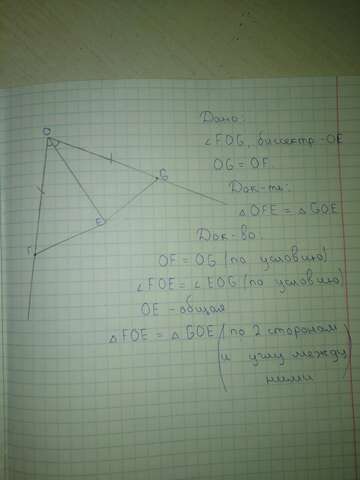 O
G
E
F
Дано:
∠FOG, биссектр-OE
OG = OF.
Док-ть:
△OFE = △GOE
Док-во:
OF = OG (по условию)
∠FOE = ∠EOG (по условию)
OE - общая
△FOE = △GOE (по 2 сторонам
и углу между
ними)